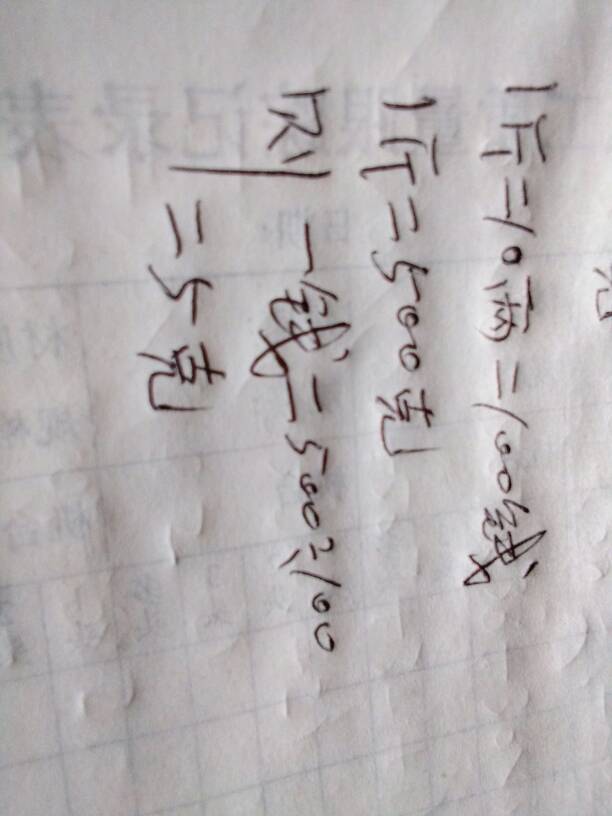 1斤=10两=100钱
1斤=500克
则 一钱=500÷100
=5克